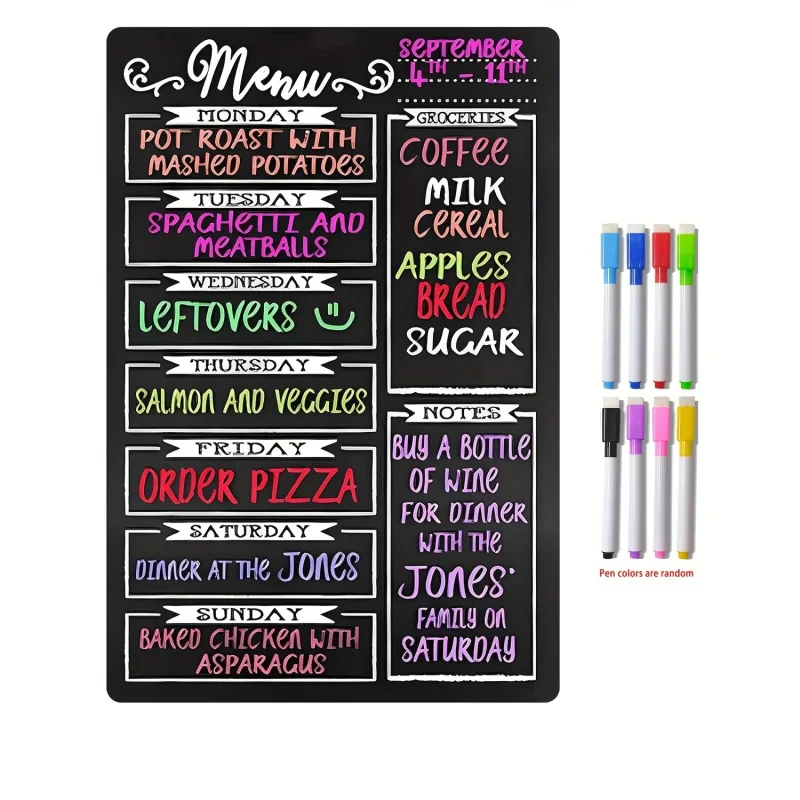 Menu
SEPTEMBER
4TH - 11TH
MONDAY
POT ROAST WITH
MASHED POTATOES
TUESDAY
SPAGHETTI AND
MEATBALLS
WEDNESDAY
LEFTOVERS
THURSDAY
SALMON AND VEGGIES
FRIDAY
ORDER PIZZA
SATURDAY
DINNER AT THE JONES
SUNDAY
BAKED CHICKEN WITH
ASPARAGUS
GROCERIES
COFFEE
MILK
CEREAL
APPLES
BREAD
SUGAR
NOTES
BUY A BOTTLE
OF WINE
FOR DINNER
WITH THE
JONES'
FAMILY ON
SATURDAY
Pen colors are random